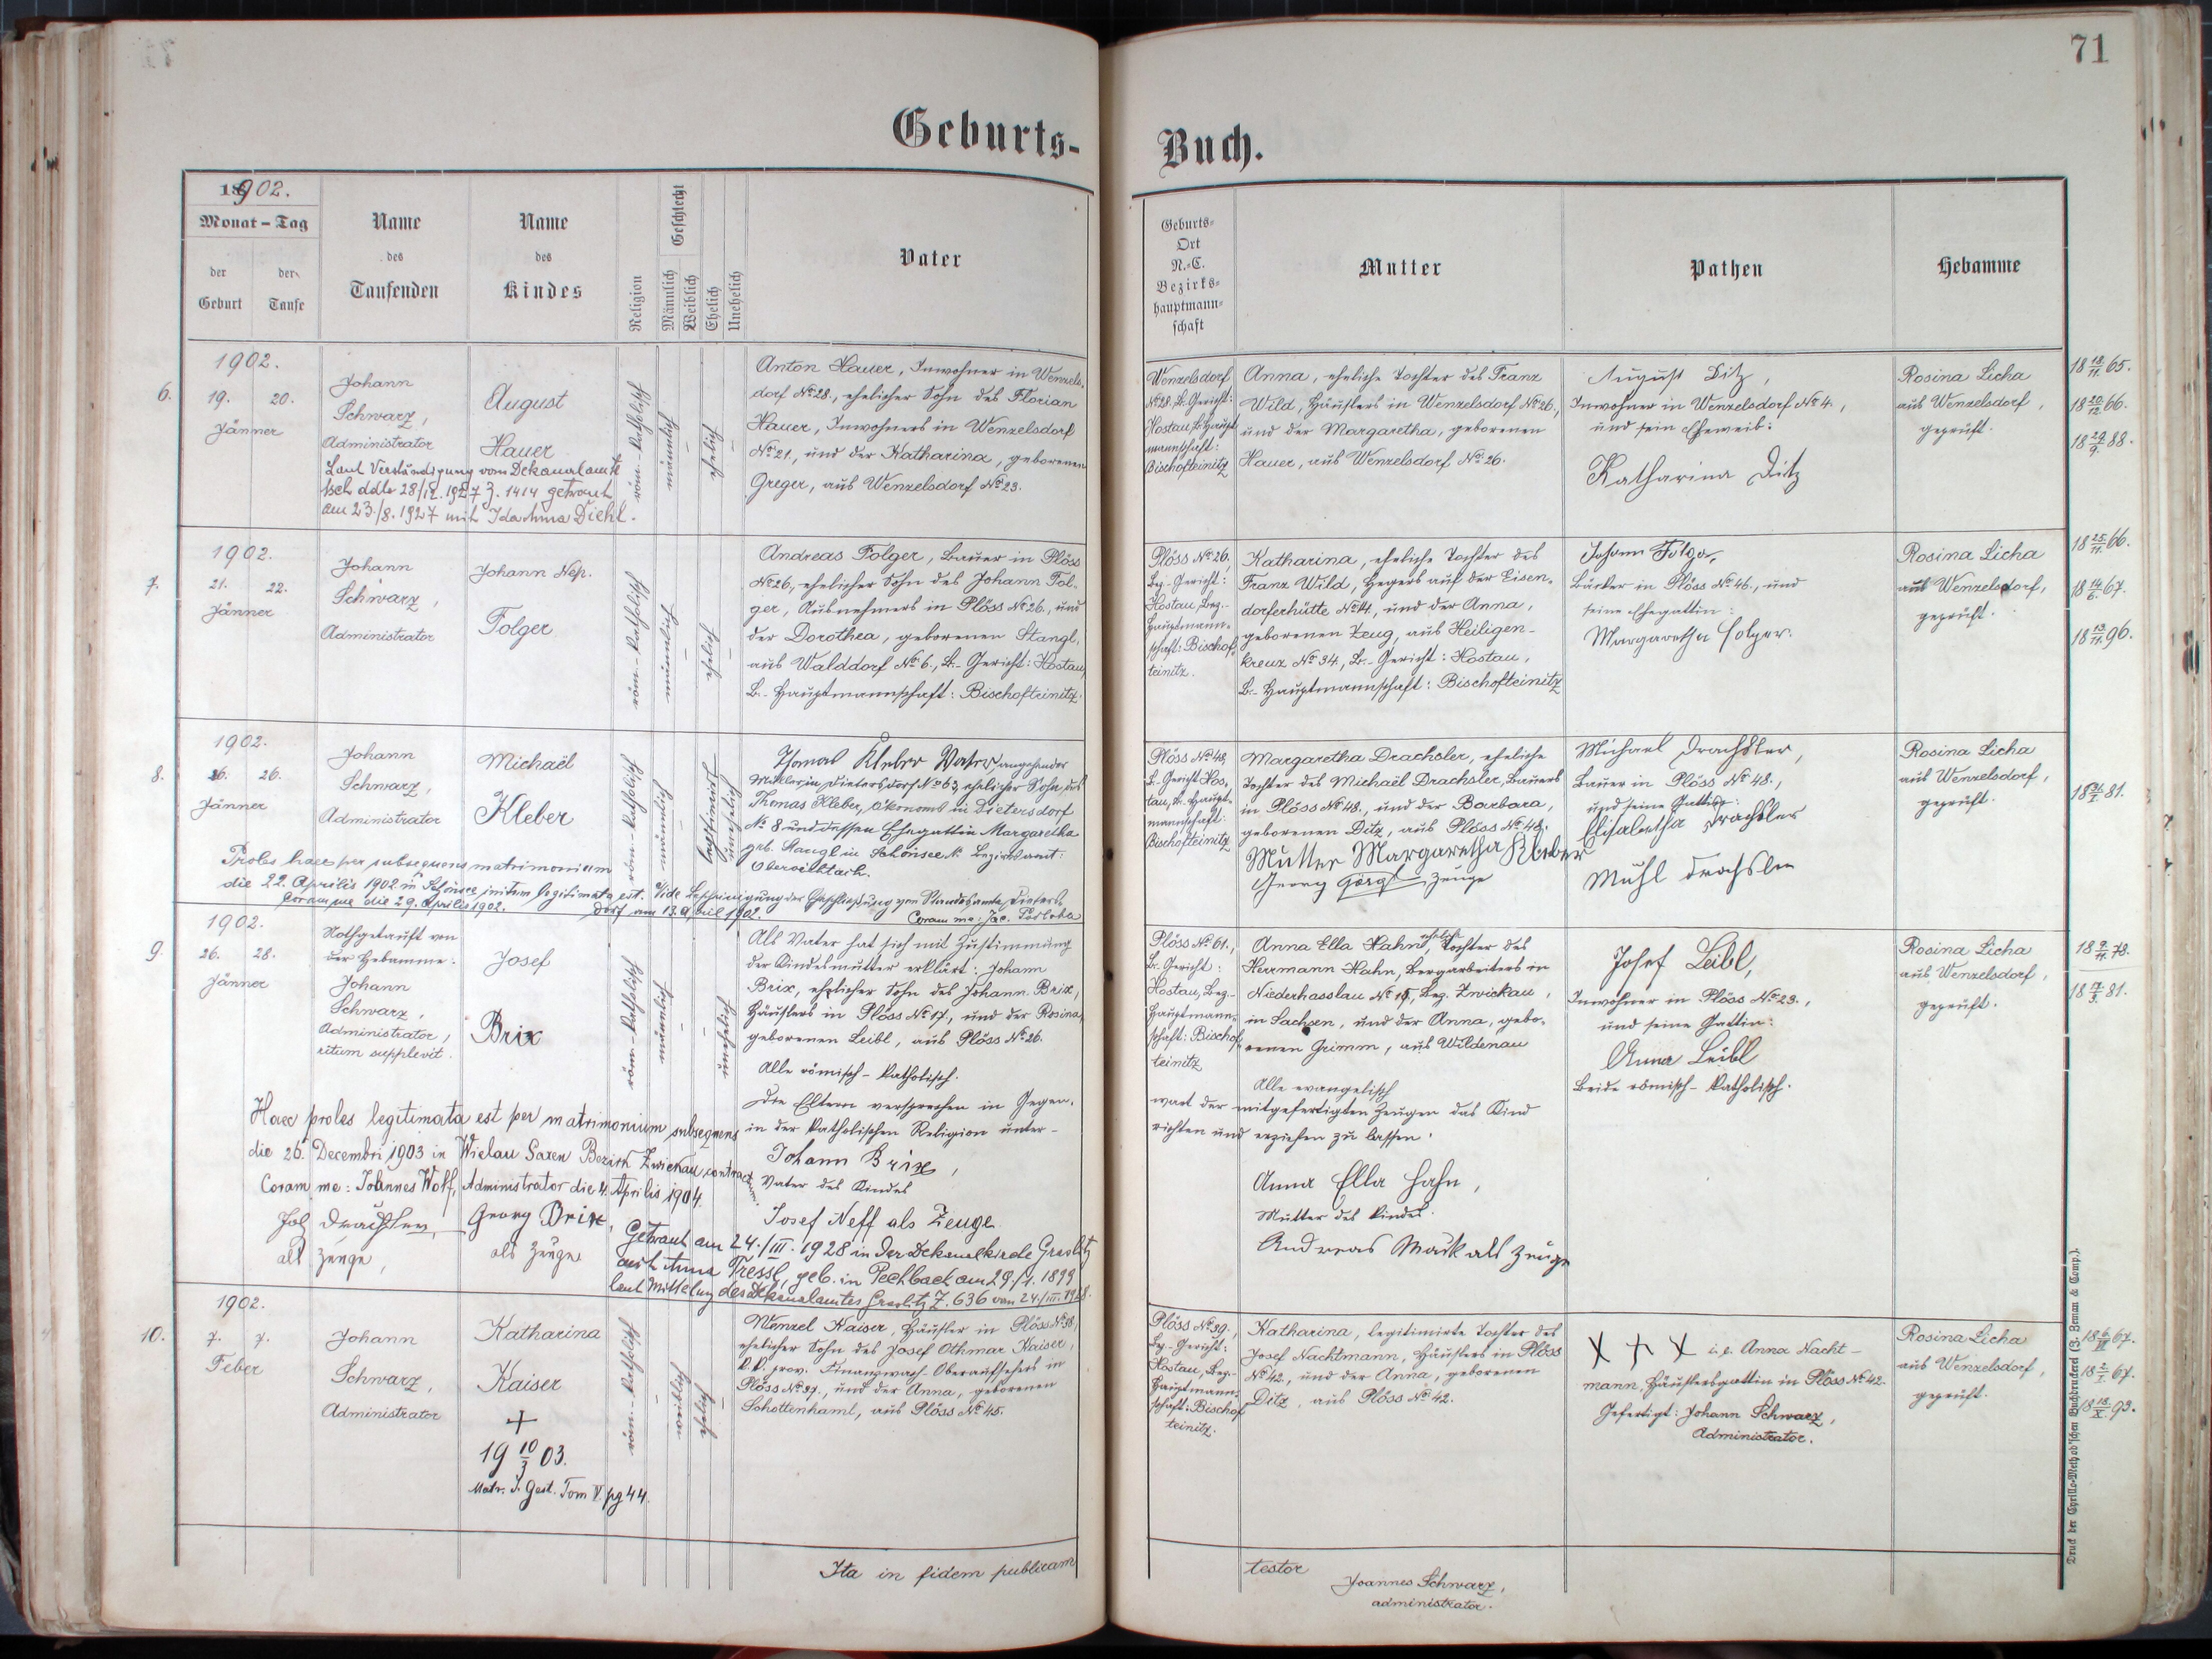 71
Geburts-
Buch.
1902.
Monat – Tag
der Geburt
der Taufe
Name des Taufenden
Name des Kindes
Religion
Geschlecht
Männlich
Weiblich
Ehelich
Unehelich
Vater
Geburts-
Ort
N.-C.
Bezirks-
hauptmann-
schaft
Mutter
Pathen
Hebamme
6.
1902.
19. 20.
Jänner
Johann
Schwarz,
Administrator
August
Hauer
Laut Verständigung vom Dekanalamte
Asch ddto 28/12. 1927 Z. 1414 getraut
am 23./8. 1927 mit Ida Anna Diehl.
röm.-katholisch
männlich
ehelich
Anton Hauer, Inwohner in Wenzels-
dorf No. 28., ehelicher Sohn des Florian
Hauer, Inwohners in Wenzelsdorf
No. 21., und der Katharina, geborenen
Greger, aus Wenzelsdorf No. 23.
Wenzelsdorf
No. 28. B. Gericht:
Hostau, B. Haupt-
mannschaft:
Bischofteinitz
Anna, eheliche Tochter des Franz
Wild, Häuslers in Wenzelsdorf No. 26.,
und der Margaretha, geborenen
Hauer, aus Wenzelsdorf No. 26.
August Ditz,
Inwohner in Wenzelsdorf No. 4.,
und sein Eheweib:
Katharina Ditz
Rosina Licha
aus Wenzelsdorf,
geprüft.
18 18/11. 65.
18 20/12. 66.
18 29/9. 88.
7.
1902.
21. 22.
Jänner
Johann
Schwarz,
Administrator
Johann Nep.
Folger
röm.-katholisch
männlich
ehelich
Andreas Folger, Bauer in Plöss
No. 26., ehelicher Sohn des Johann Fol-
ger, Ausnehmers in Plöss No. 26., und
der Dorothea, geborenen Stangl,
aus Walddorf No. 6., B.-Gericht: Hostau,
B.-Hauptmannschaft: Bischofteinitz.
Plöss No. 26.
Bez.-Gericht:
Hostau, Bez.-
Hauptmann-
schaft: Bischof-
teinitz.
Katharina, eheliche Tochter des
Franz Wild, Hegers auf der Eisen-
dorferhütte No. 4., und der Anna,
geborenen Zeug, aus Heiligen-
kreuz No. 34., B.-Gericht: Hostau,
B.-Hauptmannschaft: Bischofteinitz
Johann Folger,
Bäcker in Plöss No. 46., und
seine Ehegattin:
Margaretha Folger.
Rosina Licha
aus Wenzelsdorf,
geprüft.
18 25/11. 66.
18 14/6. 67.
18 13/11. 96.
8.
1902.
26. 26.
Jänner
Johann
Schwarz,
Administrator
Michaël
Kleber
röm.-katholisch
männlich
legitimirt
unehelich
Thomas Kleber Vater angehender
Müller in Dietersdorf No. 63, ehelicher Sohn des
Thomas Kleber, Ökonoms in Dietersdorf
No. 8 und dessen Ehegattin Margaretha
geb. Mangl in Schönsee k. Bezirksamt:
Oberviechtach.
Proles haec per subsequens matrimonium
die 22. Aprilis 1902 in Schönsee initum legitimata est. Vide Bescheinigung der Eheschließung vom Standesamte Dieters-
dorf am 13. April 1902.
Coram me die 29. Aprilis 1902.
Coram me: Jac.
Plöss No. 48,
B. Gericht: Hos-
tau, B. Haupt-
mannschaft:
Bischofteinitz
Margaretha Drachsler, eheliche
Tochter des Michaël Drachsler, Bauers
in Plöss No. 48., und der Barbara,
geborenen Ditz, aus Plöss No. 48.
Mutter Margaretha Kleber
Georg Görgl Zeuge
Michael Drachsler,
Bauer in Plöss No. 48.,
und seine Gattin:
Elisabetha Drachsler
Mühl Drachsler
Rosina Licha
aus Wenzelsdorf,
geprüft.
81.
9.
1902.
26. 28.
Jänner
Nothgetauft von
der Hebamme:
Johann
Schwarz,
Administrator,
ritum supplevit.
Josef
Brix
röm.-katholisch
männlich
unehelich
Als Vater hat sich mit Zustimmung
der Kindesmutter erklärt: Johann
Brix, ehelicher Sohn des Johann Brix,
Häuslers in Plöss No. 17., und der Rosina,
geborenen Leibl, aus Plöss No. 26.
Alle römisch-katholisch.
Die Eltern versprechen in Gegen-
in der katholischen Religion unter-
Johann Brix,
Vater des Kindes
Josef Neff als Zeuge
Haec proles legitimata est per matrimonium subsequens
die 26. Decembri 1903 in Wielau Saxen Bezirk Zwickau contractum.
Coram me: Joannes Wolf, Administrator die 4. Aprilis 1904.
Joh Drachsler,
als Zeuge,
Georg Brix,
als Zeuge
Getraut am 24./III. 1928 in der Dekanalkirche Graslitz
mit Anna Tressl, geb. in Pechbach am 29./1. 1899
laut Mitteilung des Dekanalamtes Graslitz Z. 636 von 24./III. 1928.
Plöss No. 61.,
B. Gericht:
Hostau, Bez.-
Hauptmann-
schaft: Bischof-
teinitz
Anna Ella Hahn, eheliche Tochter des
Herrmann Hahn, Bergarbeiters in
Niederhasslau No. 19, Bez. Zwickau,
in Sachsen, und der Anna, gebo-
renen Grimm, aus Wildenau
Alle evangelisch
wart der mitgefertigten Zeugen das Kind
richten und erziehen zu lassen.
Anna Ella Hahn,
Mutter des Kindes.
Andreas Mark als Zeuge
Josef Leibl,
Inwohner in Plöss No. 23.,
und seine Gattin:
Anna Leibl
Beide römisch-katholisch.
Rosina Licha
aus Wenzelsdorf,
geprüft.
18 9/11. 78.
81.
10.
1902.
7. 7.
Feber
Johann
Schwarz,
Administrator
Katharina
Kaiser
+
19 10/3 03.
Matr. I. Gest. Tom V. pg 44.
röm.-katholisch
weiblich
ehelich
Wenzel Kaiser, Häusler in Plöss No. 38,
ehelicher Sohn des Josef Othmar Kaiser,
k.k. prov. Finanzwach-Oberaufsehers in
Plöss No. 39., und der Anna, geborenen
Schottenhaml, aus Plöss No. 45.
Plöss No. 39.,
Bez.-Gericht:
Hostau, Bez.-
Hauptmann-
schaft: Bischof-
teinitz.
Katharina, legitimirte Tochter des
Josef Nachtmann, Häuslers in Plöss
No. 42., und der Anna, geborenen
Ditz, aus Plöss No. 42.
X X X i.e. Anna Nacht-
mann, Häuslersgattin in Plöss No. 42.
Gefertigt: Johann Schwarz,
Administrator.
Rosina Licha
aus Wenzelsdorf,
geprüft.
67.
67.
93.
Ita in fidem publicam
testor
Joannes Schwarz,
administrator.
Druck der Cyrillo-Method'schen Buchdruckerei (J. Zeman & Comp.).